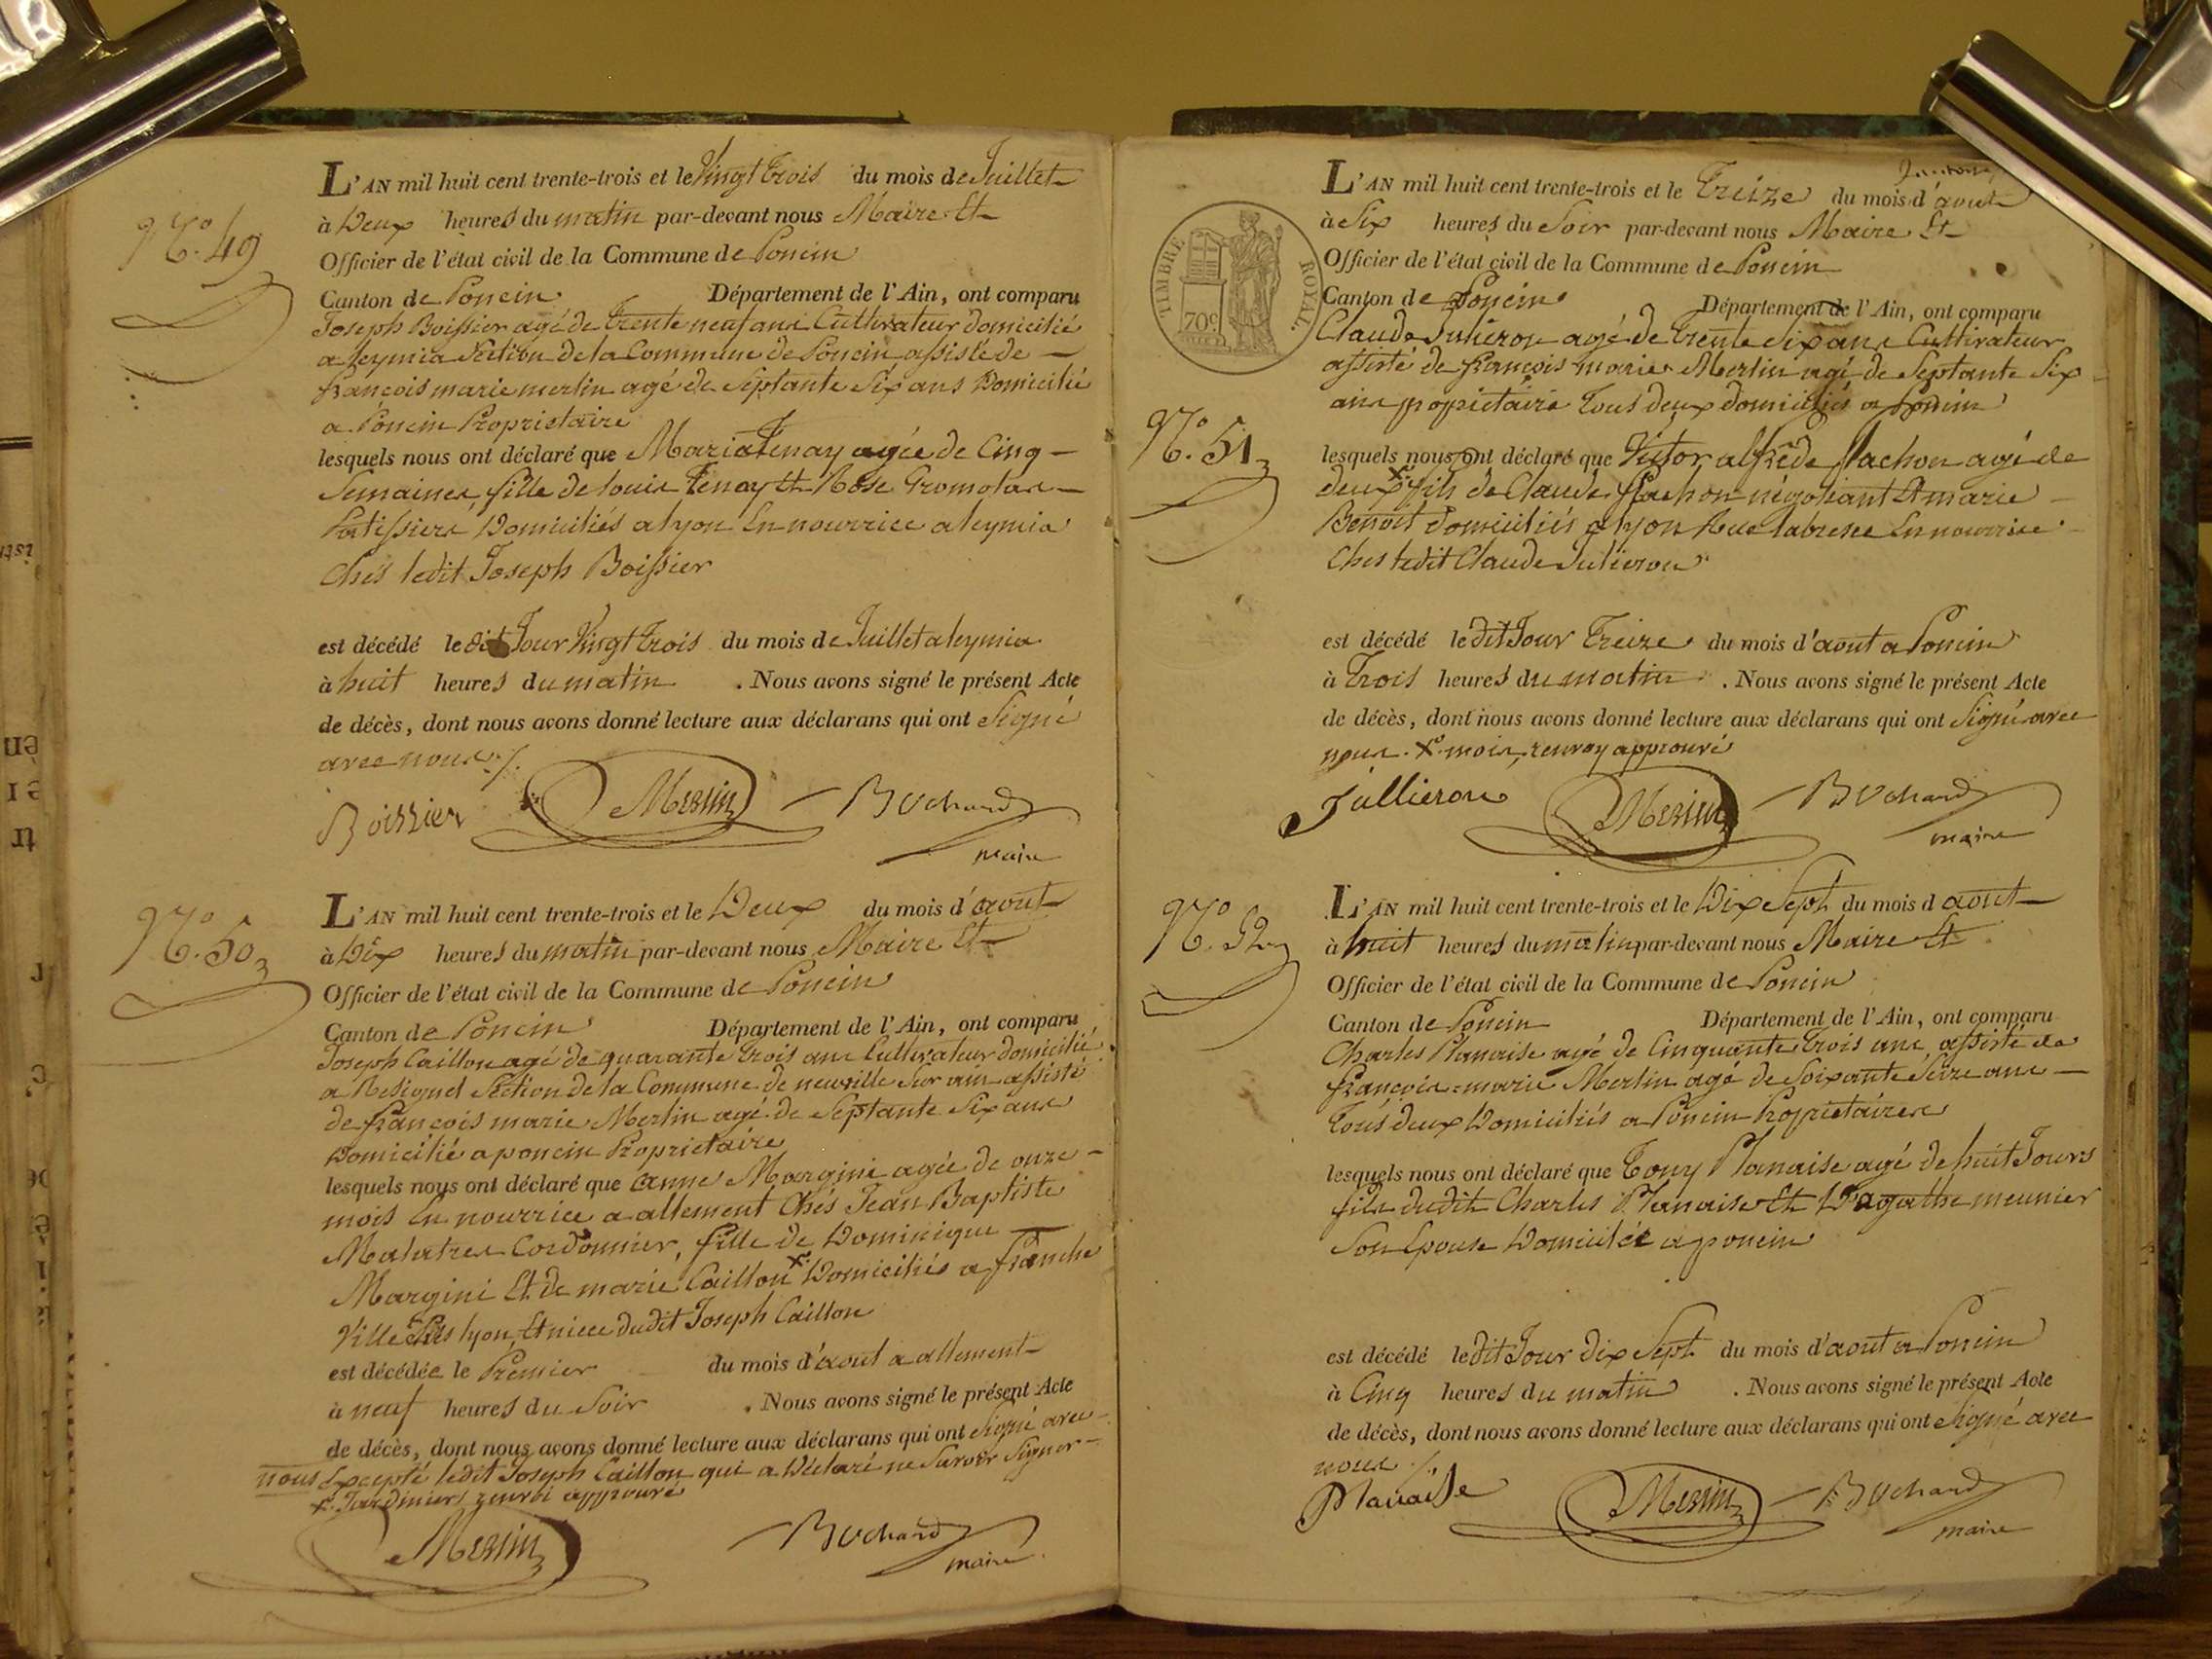 N.° 49
L'AN mil huit cent trente-trois et le Vingt trois du mois de Juillet
à Deux heures du matin par-devant nous Maire Et
Officier de l'état civil de la Commune de Poncin
Canton de Poncin Département de l'Ain, ont comparu
Joseph Boissier agé de trente neuf ans Cultivateur domicilié
a leymia Section de la Commune de Poncin assisté de
françois marie merlin agé de Septante Six ans Domicilié
a Poncin Proprietaire
lesquels nous ont déclaré que Marie Tenay agée de Cinq
Semaines fille de louis Tenay Et Rose
Patissiers Domiciliés a lyon En nourrice a leymia
Chés ledit Joseph Boissier
est décédé le dit Jour Vingt trois du mois de Juillet a leymia
à huit heures du matin . Nous avons signé le présent Acte
de décès, dont nous avons donné lecture aux déclarans qui ont Signé
avec nous ./.
Boissier Merlin Bochard
maire
N.° 50
L'AN mil huit cent trente-trois et le Deux du mois d'aout
à Dix heures du matin par-devant nous Maire Et
Officier de l'état civil de la Commune de Poncin
Canton de Poncin Département de l'Ain, ont comparu
Joseph Caillon agé de quarante trois ans Cultivateur domicilié
a Section de la Commune de neuville Sur ain assisté
de françois marie Merlin agé de Septante Six ans
Domicilié a poncin Proprietaire
lesquels nous ont déclaré que anne Margini agée de onze
mois En nourrice a allement Chés Jean Baptiste
Malatrer Cordonnier, fille de Dominique
Margini Et de marie Caillon x Domiciliés a franche
Ville lyon, Et niece dudit Joseph Caillon
est décédée le Premier du mois d'aout a allement
à neuf heures du Soir . Nous avons signé le présent Acte
de décès, dont nous avons donné lecture aux déclarans qui ont Signé avec
nous Excepté ledit Joseph Caillon qui a Déclaré ne Savoir Signer
x. Jardiniers renvoi approuvé
Merlin Bochard
maire
TIMBRE ROYAL
70c
L'AN mil huit cent trente-trois et le Treize du mois d'aout
à Six heures du Soir par-devant nous Maire Et
Officier de l'état civil de la Commune de Poncin
Canton de Poncin Département de l'Ain, ont comparu
Claude Julieron agé de trente six ans Cultivateur
assisté de françois marie Merlin agé de Septante Six
ans proprietaire tous deux domiciliés a Poncin
N.° 51
lesquels nous ont déclaré que Victor alfrede flachon agé de
deux x fils de Claude flachon négotiant Et marie
Benoit domiciliés a lyon Rue En nourrice
Ches ledit Claude Julieron
est décédé le dit Jour Treize du mois d'aout a Poncin
à Trois heures du matin . Nous avons signé le présent Acte
de décès, dont nous avons donné lecture aux déclarans qui ont Signé avec
nous. x. mois, renvoy approuvé
Jullieron Merlin Bochard
maire
N.° 52
L'AN mil huit cent trente-trois et le Dix Sept du mois d aout
à huit heures du matin par-devant nous Maire Et
Officier de l'état civil de la Commune de Poncin
Canton de Poncin Département de l'Ain, ont comparu
Charles Planaise agé de Cinquante trois ans assisté de
françois=marie Merlin agé de Soixante Seize ans
tous deux Domiciliés a Poncin Proprietaires
lesquels nous ont déclaré que Tony Planaise agé de huit Jours
fils dudit Charles Planaise Et D'agathe meunier
Son Epouse Domiciliée a poncin
est décédé le dit Jour dix Sept du mois d'aout a Poncin
à Cinq heures du matin . Nous avons signé le présent Acte
de décès, dont nous avons donné lecture aux déclarans qui ont Signé avec
nous ./.
Planaise Merlin Bochard
maire